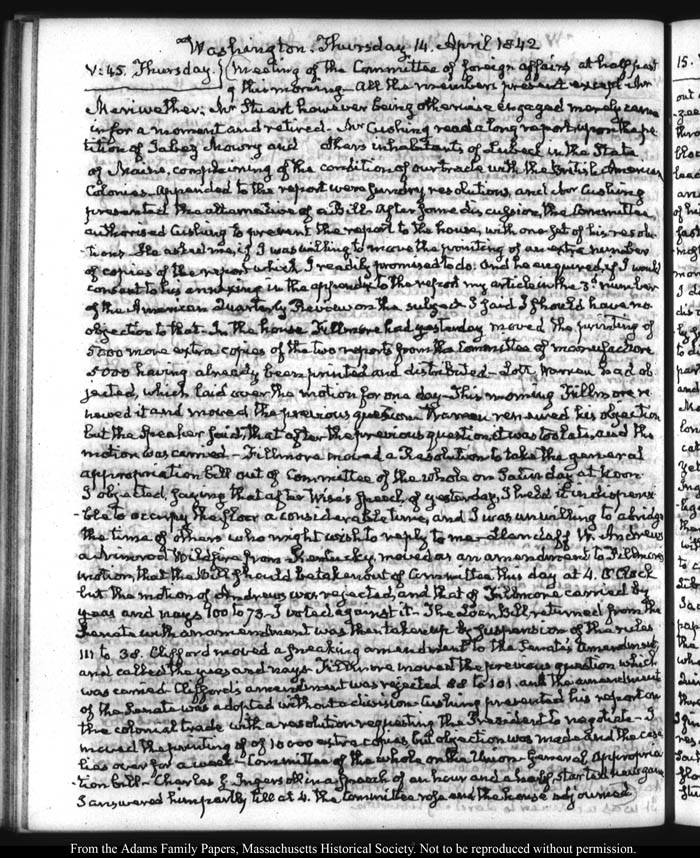 Washington. Thursday 14. April 1842
V:45. Thursday. Meeting of the Committee of foreign affairs at half past
9 this morning. All the members present except Mr
Meriwether; Mr Stuart however being otherwise engaged merely came
in for a moment and retired. Mr Cushing read a long report upon the pe-
tition of Jabez Mowry and others inhabitants of Lubec in the State
of Maine, complaining of the condition of our trade with the British American
Colonies. Appended to the report were sundry resolutions, and Mr Cushing
presented the alternative of a Bill. After some discussion, the Committee
authorised Cushing to present the report to the house, with one set of his resolu-
tions. He asked me, if I was willing to move the printing of an extra number
of copies of the report which I readily promised to do. And he enquired, if I would
consent to his annexing in the appendix to the report my article in the 3d number
of the American Quarterly Review on the subject. I said I should have no
objection to that. In the house Fillmore had yesterday moved the printing of
5000 more extra copies of the two reports from the Committee of manufactures
5000 having already been printed and distributed. Lott Warren had ob-
jected, which laid over the motion for one day. This morning Fillmore re-
newed it and moved the previous question. Warren renewed his objection
but the Speaker said, that after the previous question, it was too late, and the
motion was carried. Fillmore moved a Resolution to take the general
appropriation bill out of Committee of the whole on Saturday at Noon.
I objected, saying that after Wise's speech of yesterday, I held it indispensa-
ble to occupy the floor a considerable time, and I was unwilling to abridge
the time of others who might wish to reply to me. Landaff W. Andrews
a wildfire from Kentucky, moved as an amendment to Fillmore's
motion, that the Bill should be taken out of Committee this day at 4. O'Clock
but the motion of Andrews was rejected, and that of Fillmore carried by
yeas and nays 100 to 73. I voted against it. The Loan Bill returned from the
Senate with an amendment was then taken up by suspension of the rules
111 to 38. Clifford moved a sneaking amendment to the Senate's amendment,
and called the yeas and nays. Fillmore moved the previous question which
was carried. Clifford's amendment was rejected 88 to 101 and the amendment
of the Senate was adopted without a division. Cushing presented his report on
the colonial trade with a resolution requesting the President to negotiate. I
moved the printing of of 10000 extra copies, but objection was made and the case
lies over for a week. Committee of the whole on the Union. General Appropria-
tion bill. Charles J. Ingersoll in a speech of an hour and a half
I answered him partly till at 4. the Committee rose and the house adjourned
15.
From the Adams Family Papers, Massachusetts Historical Society. Not to be reproduced without permission.